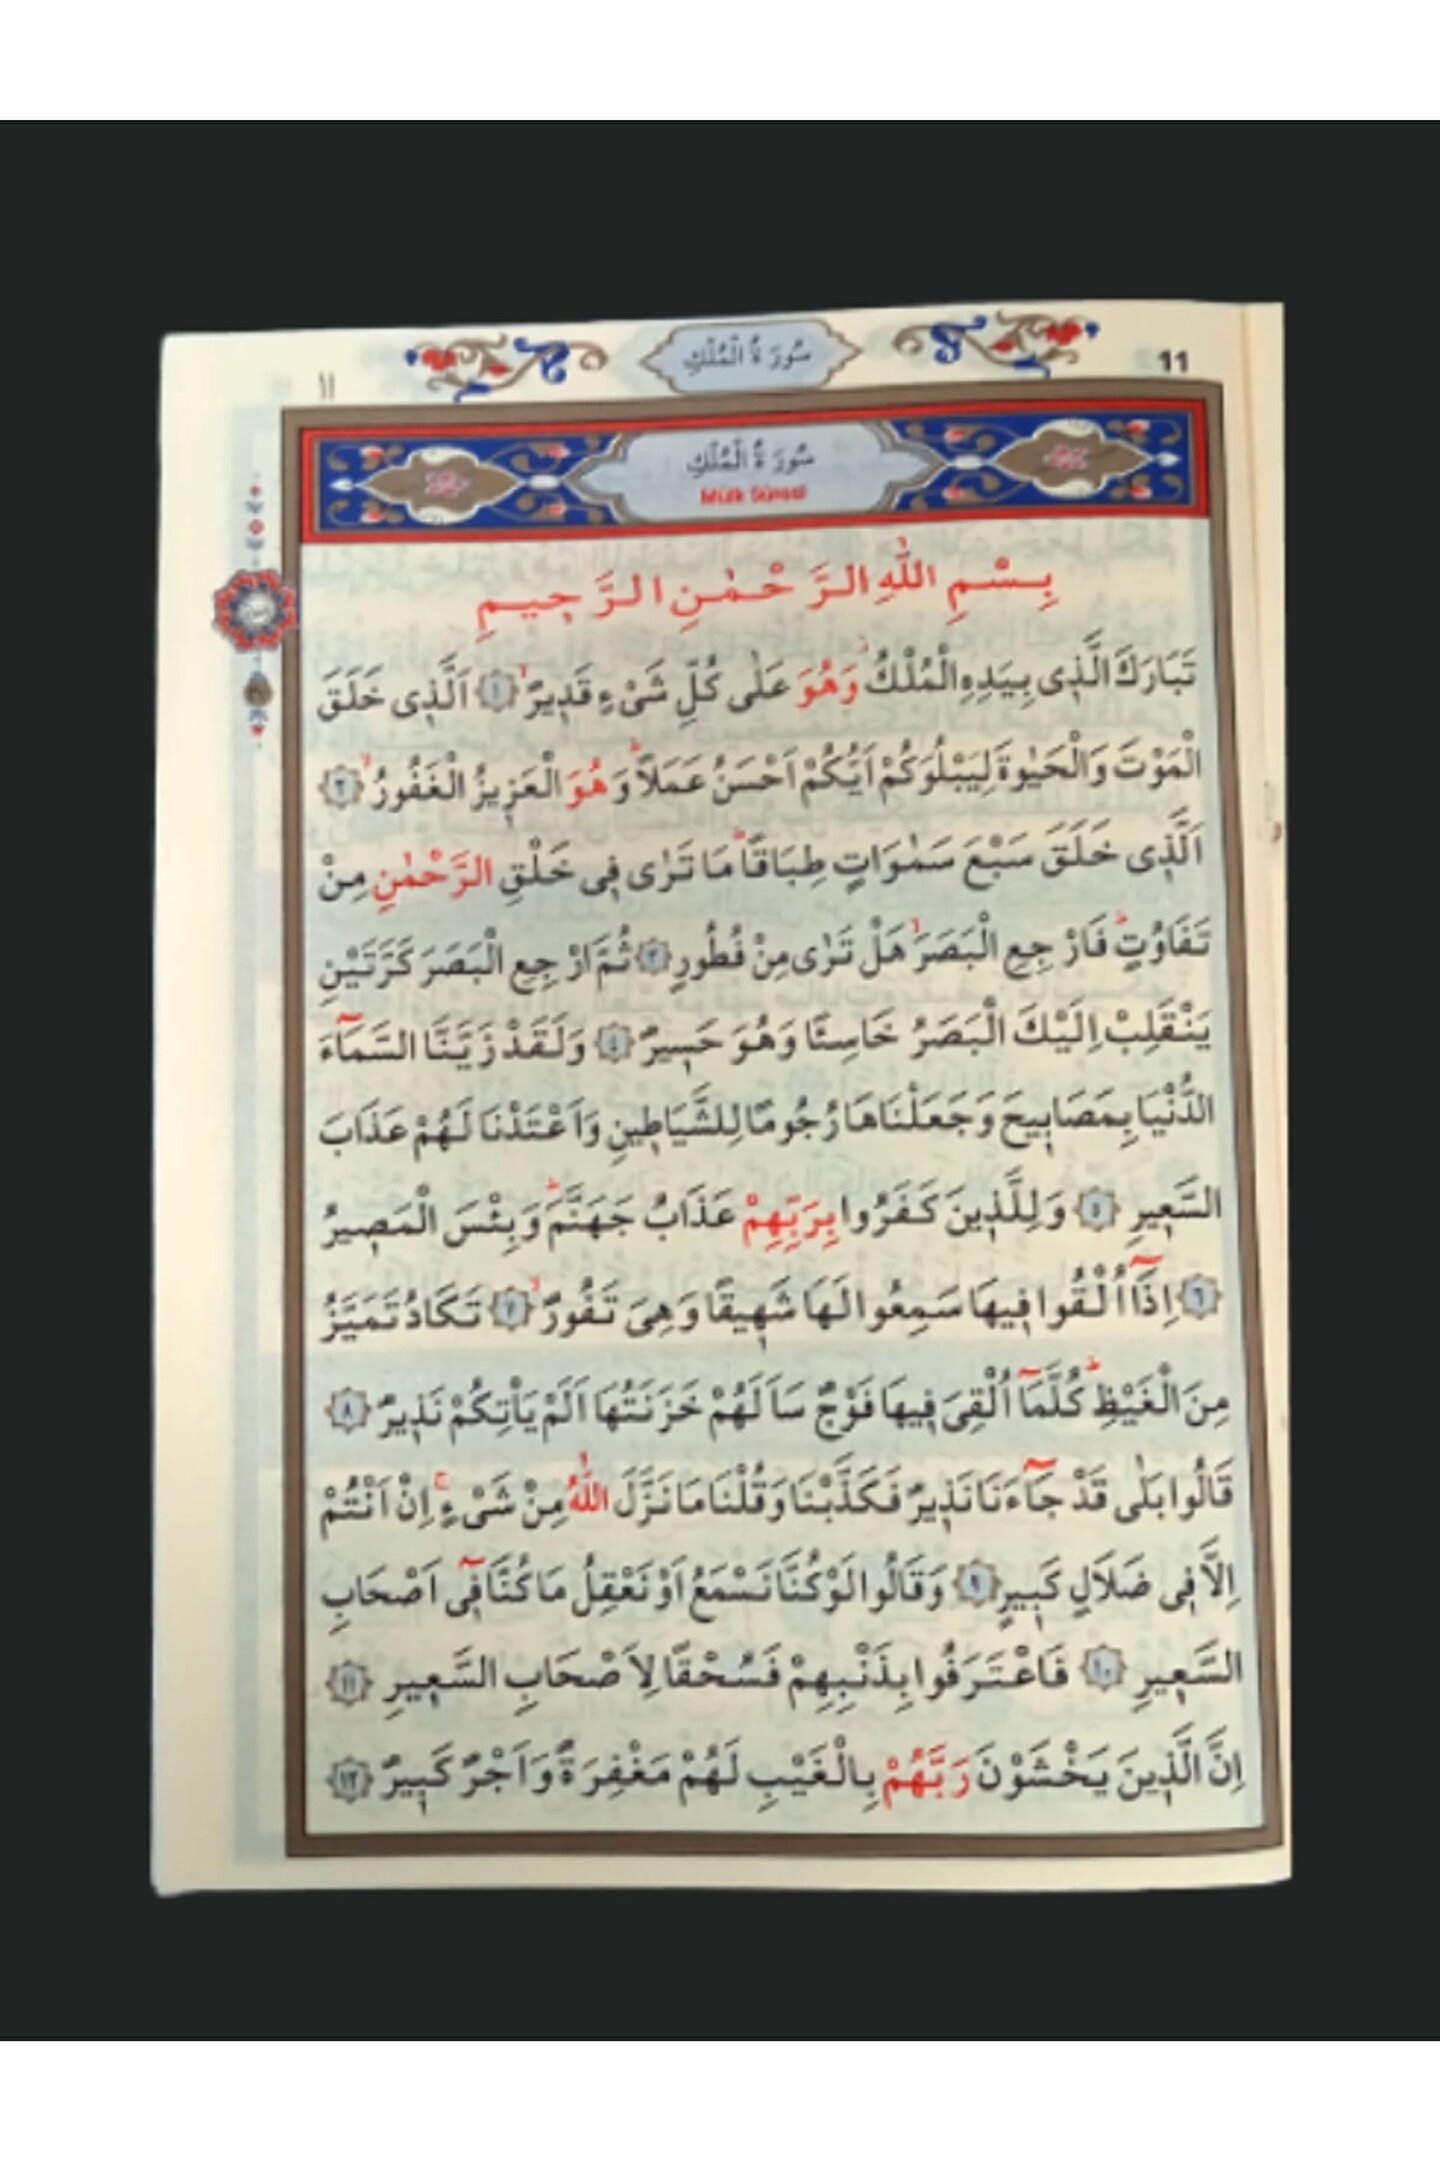 سُورَةُ الْمُلْكِ
11
١١
سُورَةُ الْمُلْكِ
Mülk Sûresi
بِسْمِ اللّٰهِ الرَّحْمٰنِ الرَّحِيمِ
تَبَارَكَ الَّذٖى بِيَدِهِ الْمُلْكُۘ وَهُوَ عَلٰى كُلِّ شَىْءٍ قَدٖيرٌۙ ﴿١﴾ اَلَّذٖى خَلَقَ
الْمَوْتَ وَالْحَيٰوةَ لِيَبْلُوَكُمْ اَيُّكُمْ اَحْسَنُ عَمَلاًؕ وَهُوَ الْعَزٖيزُ الْغَفُورُۙ ﴿٢﴾
اَلَّذٖى خَلَقَ سَبْعَ سَمٰوَاتٍ طِبَاقًاؕ مَا تَرٰى فٖى خَلْقِ الرَّحْمٰنِ مِنْ
تَفَاوُتٍؕ فَارْجِعِ الْبَصَرَۙ هَلْ تَرٰى مِنْ فُطُورٍ ﴿٣﴾ ثُمَّ ارْجِعِ الْبَصَرَ كَرَّتَيْنِ
يَنْقَلِبْ اِلَيْكَ الْبَصَرُ خَاسِئًا وَهُوَ حَسٖيرٌ ﴿٤﴾ وَلَقَدْ زَيَّنَّا السَّمَٓاءَ
الدُّنْيَا بِمَصَابٖيحَ وَجَعَلْنَاهَا رُجُومًا لِلشَّيَاطٖينِ وَاَعْتَدْنَا لَهُمْ عَذَابَ
السَّعٖيرِ ﴿٥﴾ وَلِلَّذٖينَ كَفَرُوا بِرَبِّهِمْ عَذَابُ جَهَنَّمَؕ وَبِئْسَ الْمَصٖيرُ
﴿٦﴾ اِذَٓا اُلْقُوا فٖيهَا سَمِعُوا لَهَا شَهٖيقًا وَهِىَ تَفُورُۙ ﴿٧﴾ تَكَادُ تَمَيَّزُ
مِنَ الْغَيْظِؕ كُلَّمَٓا اُلْقِىَ فٖيهَا فَوْجٌ سَاَلَهُمْ خَزَنَتُهَا اَلَمْ يَاْتِكُمْ نَذٖيرٌ ﴿٨﴾
قَالُوا بَلٰى قَدْ جَٓاءَنَا نَذٖيرٌ فَكَذَّبْنَا وَقُلْنَا مَا نَزَّلَ اللّٰهُ مِنْ شَىْءٍۚ اِنْ اَنْتُمْ
اِلَّا فٖى ضَلَالٍ كَبٖيرٍ ﴿٩﴾ وَقَالُوا لَوْ كُنَّا نَسْمَعُ اَوْ نَعْقِلُ مَا كُنَّا فٖٓى اَصْحَابِ
السَّعٖيرِ ﴿١٠﴾ فَاعْتَرَفُوا بِذَنْبِهِمْ فَسُحْقًا لِاَصْحَابِ السَّعٖيرِ ﴿١١﴾
اِنَّ الَّذٖينَ يَخْشَوْنَ رَبَّهُمْ بِالْغَيْبِ لَهُمْ مَغْفِرَةٌ وَاَجْرٌ كَبٖيرٌ ﴿١٢﴾